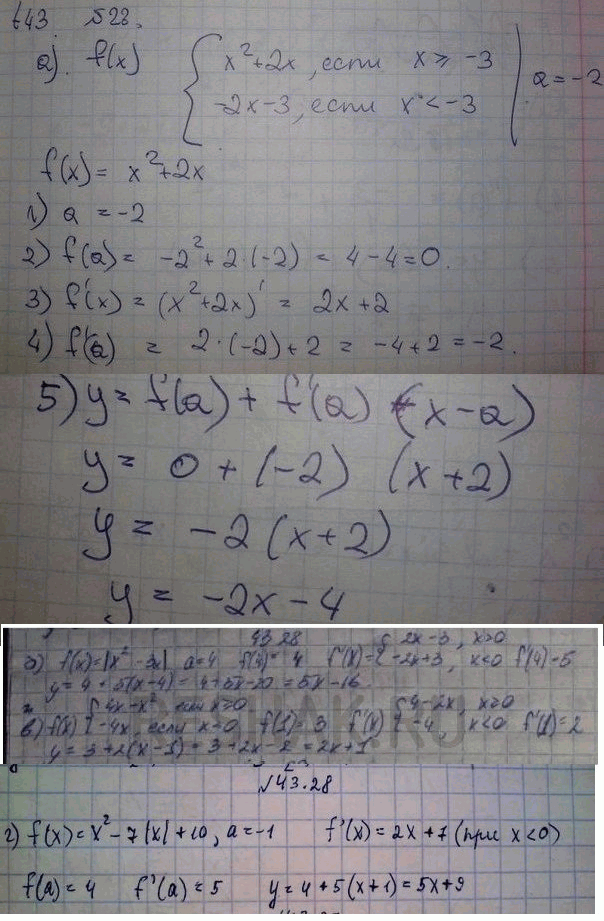 t43 №28.
а). f(x) { x²+2x, если x ≥ -3 | a = -2
-2x-3, если x < -3
f(x) = x²+2x
1) a = -2
2) f(a) = -2²+2·(-2) = 4-4=0.
3) f'(x) = (x²+2x)' = 2x+2
4) f'(a) = 2·(-2)+2 = -4+2 = -2.
5) y = f(a) + f'(a) (x-a)
y = 0 + (-2) (x+2)
y = -2(x+2)
y = -2x-4
43.28
f(x)=|x²-3x| a=4 f(4)=4 f'(x)={ 2x-3, x>0
-2x+3, x<0 f'(4)=5
y=4+5(x-4)=4+5x-20=5x-16
в) f(x) { 4x-x², если x≥0
-4x, если x<0 f(1)=3 f'(x) { 4-2x, x≥0
-4, x<0 f'(1)=2
y=3+2(x-1)=3+2x-2=2x+1
№43.28
г) f(x)=x²-7|x|+10, a=-1 f'(x)=2x+7 (при x<0)
f(a)=4 f'(a)=5 y=4+5(x+1)=5x+9